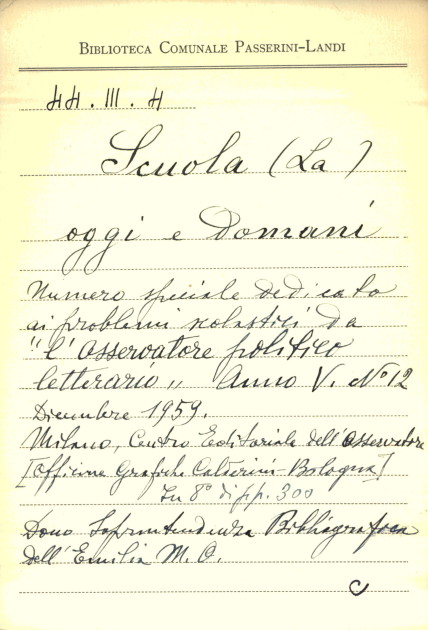 BIBLIOTECA COMUNALE PASSERINI-LANDI
44. III. 4
Scuola (La)
oggi e domani
Numero speciale dedicato
ai problemi scolastici da
"l'Osservatore politico
letterario" Anno V. N° 12
Dicembre 1959.
Milano, Centro Editoriale dell'Osservatore
[Officine Grafiche Calderini - Bologna]
In 8° di pp. 300
Dono Soprintendenza Bibliografica
dell'Emilia M. O.
C